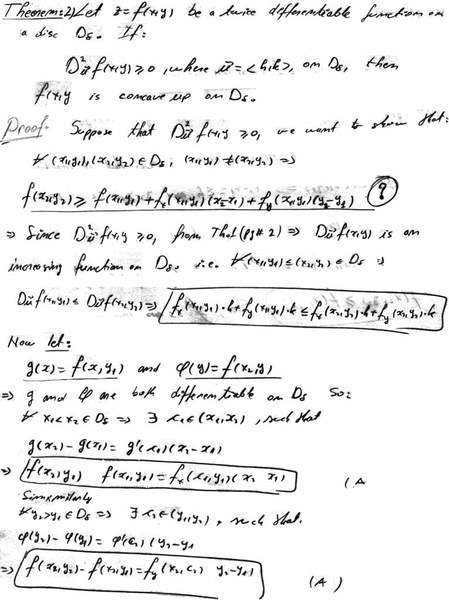 Theorem:2) Let z = f(x,y) be a twice differentiable function on
a disc Dδ. If:
D²u⃗ f(x,y) ≥ 0, where u⃗ = <h,k>, on Dδ, then
f(x,y is concave up on Dδ.
Proof. Suppose that D²u⃗ f(x,y ≥ 0, we want to show that:
∀ (x₁,y₁), (x₂,y₂) ∈ Dδ, (x₁,y₁) ≠ (x₂,y₂) ⇒
f(x₂,y₂) ≥ f(x₁,y₁) + fx(x₁,y₁)(x₂-x₁) + fy(x₁,y₁)(y₂-y₁) ?
⇒ Since D²u⃗ f(x,y ≥ 0, from Th#1(pg#2) ⇒ Du⃗ f(x,y) is an
increasing function on Dδ. i.e. ∀(x₁,y₁) ≤ (x₂,y₂) ∈ Dδ ⇒
Du⃗ f(x₁,y₁ ≤ Du⃗ f(x₂,y₂) ⇒ fx(x₁,y₁)·h + fy(x₁,y₁)·k ≤ fx(x₂,y₂)·h + fy(x₂,y₂)·k
Now let:
g(x) = f(x,y₁) and φ(y) = f(x₂,y)
⇒ g and φ are both differentiable on Dδ So:
∀ x₁<x₂ ∈ Dδ ⇒ ∃ c₁ ∈ (x₁,x₂), such that
g(x₂) - g(x₁) = g'(c₁)(x₂-x₁)
⇒ f(x₂,y₁) f(x₁,y₁) = fx(c₁,y₁)(x₂ x₁) (A
Simmilarly
∀ y₂>y₁ ∈ Dδ ⇒ ∃ c₂ ∈ (y₁,y₂), such that.
φ(y₂) - φ(y₁) = φ'(c₂)(y₂-y₁
⇒ f(x₂,y₂) - f(x₂,y₁) = fy(x₂,c₂) y₂-y₁) (A)